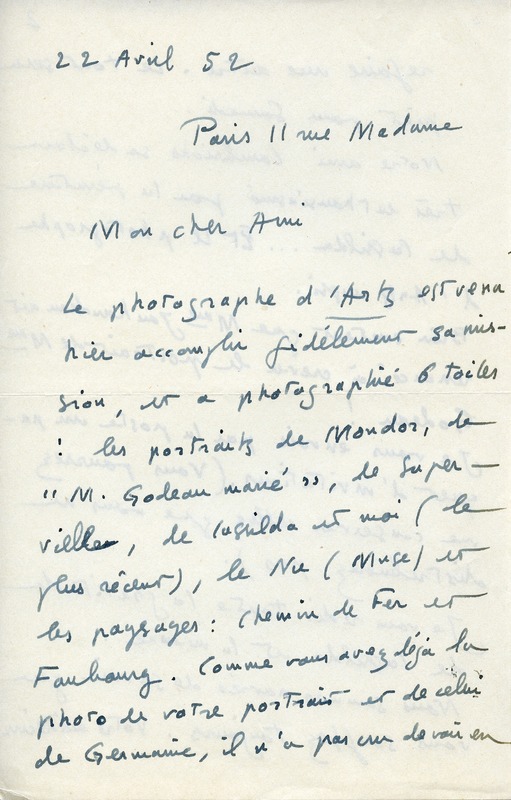 22 Avril 52
Paris 11 rue Madame
Mon cher Ami
Le photographe d'Arts est venu
hier accomplir fidèlement sa mis-
sion, et a photographié 6 toiles
: les portraits de Mondor, de
"M. Godeau marié", de Super-
vielle, de Casilda et moi (le
plus récent), le Nu (Muse) et
les paysages: Chemin de Fer et
Faubourg. Comme vous avez déjà la
photo de votre portrait et de celui
de Germaine, il n'a pas cru devoir en